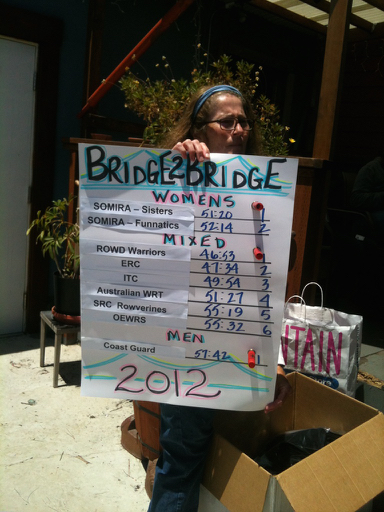 BRIDGE2BRIDGE
WOMENS
SOMIRA – Sisters 51:20 1
SOMIRA – Funnatics 52:14 2
MIXED
ROWD Warriors 46:53
ERC 47:34 2
ITC 49:54 3
Australian WRT 51:27 4
SRC Rowverines 55:19 5
OEWRS 55:32 6
MEN
Coast Guard 57:42 1
2012
TAIN